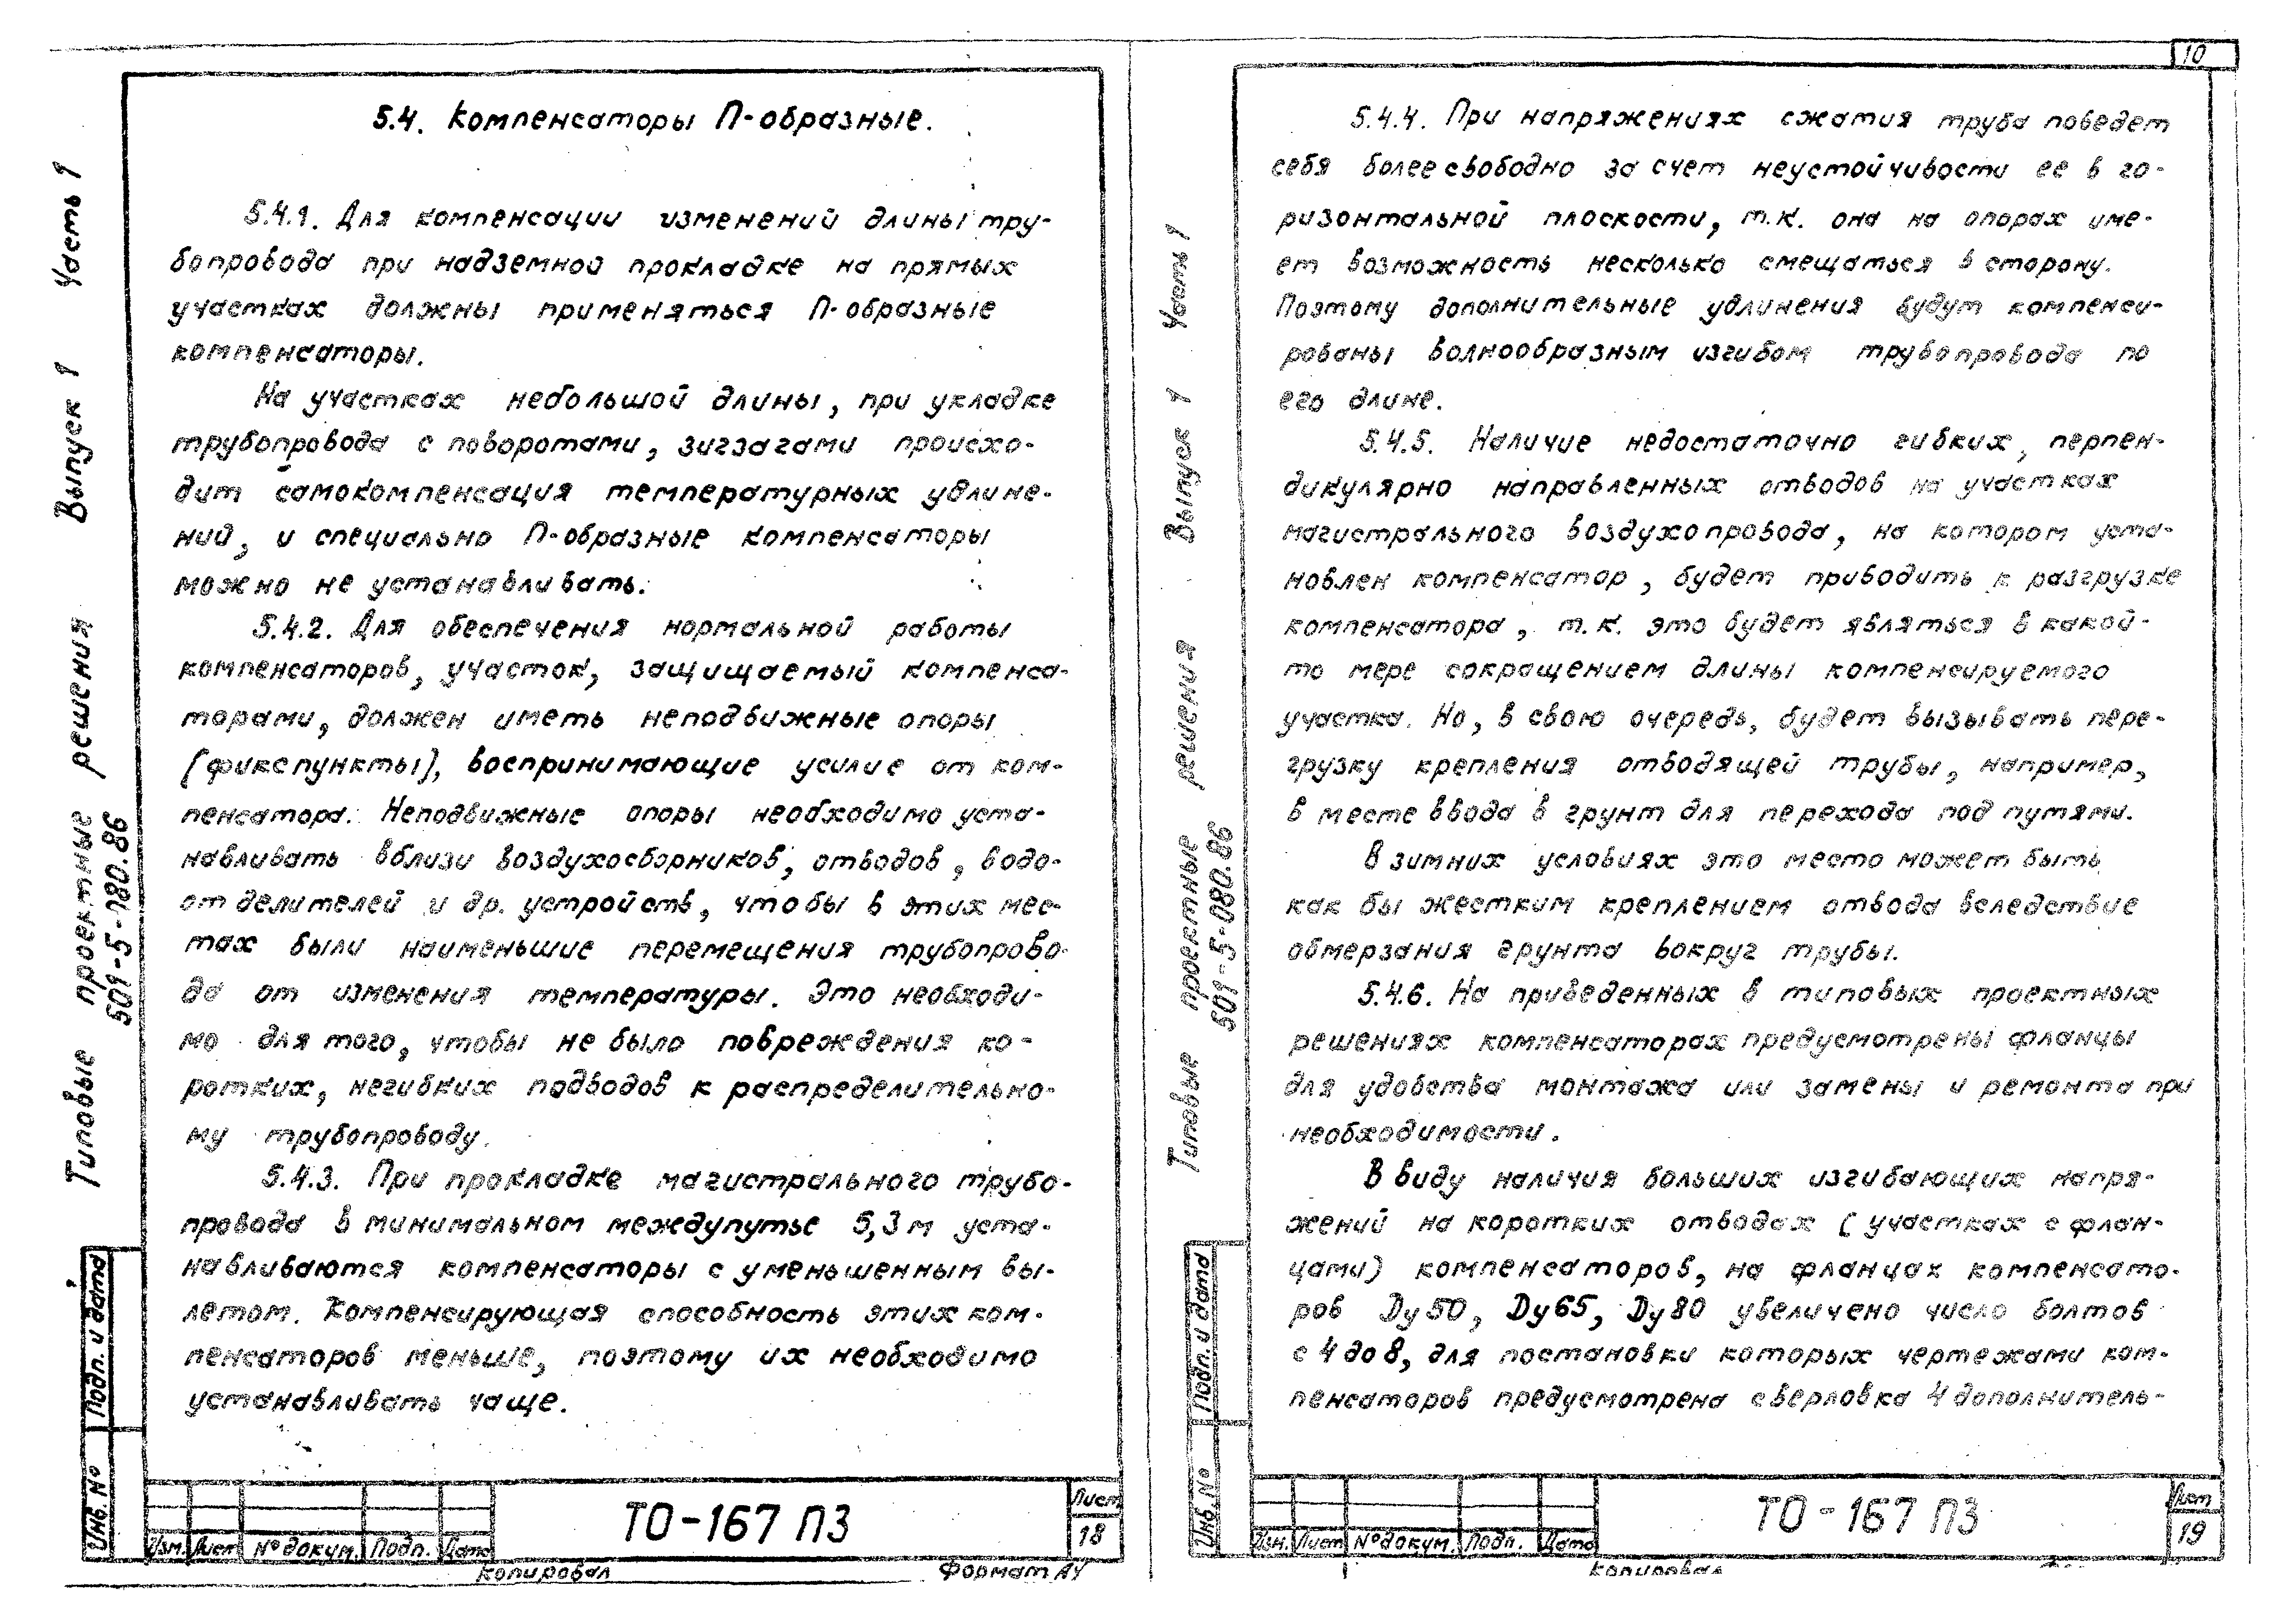 10
Типовые проектные решения Выпуск 1 Часть 1
501-5-080.86
5.4. Компенсаторы П-образные.
5.4.1. Для компенсации изменений длины тру-
бопровода при надземной прокладке на прямых
участках должны применяться П-образные
компенсаторы.
На участках небольшой длины, при укладке
трубопровода с поворотами, зигзагами происхо-
дит самокомпенсация температурных удлине-
ний, и специально П-образные компенсаторы
можно не устанавливать.
5.4.2. Для обеспечения нормальной работы
компенсаторов, участок, защищаемый компенса-
торами, должен иметь неподвижные опоры
(фикспункты), воспринимающие усилие от ком-
пенсатора. Неподвижные опоры необходимо уста-
навливать вблизи воздухосборников, отводов, водо-
отделителей и др. устройств, чтобы в этих мес-
тах были наименьшие перемещения трубопрово-
да от изменения температуры. Это необходи-
мо для того, чтобы не было повреждения ко-
ротких, негибких подводов к распределительно-
му трубопроводу.
5.4.3. При прокладке магистрального трубо-
провода в минимальном междупутье 5,3 м уста-
навливаются компенсаторы с уменьшенным вы-
летом. Компенсирующая способность этих ком-
пенсаторов меньше, поэтому их необходимо
устанавливать чаще.
Инв. № Подп. и дата
Изм. Лист № докум. Подп. Дата
ТО-167 ПЗ
Лист
18
Копировал Формат А4
Типовые проектные решения Выпуск 1 Часть 1
501-5-080.86
5.4.4. При напряжениях сжатия труба поведет
себя более свободно за счет неустойчивости ее в го-
ризонтальной плоскости, т.к. она на опорах име-
ет возможность несколько смещаться в сторону.
Поэтому дополнительные удлинения будут компенси-
рованы волнообразным изгибом трубопровода по
его длине.
5.4.5. Наличие недостаточно гибких, перпен-
дикулярно направленных отводов на участках
магистрального воздухопровода, на котором уста-
новлен компенсатор, будет приводить к разгрузке
компенсатора, т.к. это будет являться в какой-
то мере сокращением длины компенсируемого
участка. Но, в свою очередь, будет вызывать пере-
грузку крепления отводящей трубы, например,
в месте ввода в грунт для перехода под путями.
В зимних условиях это место может быть
как бы жестким креплением отвода вследствие
обмерзания грунта вокруг трубы.
5.4.6. На приведенных в типовых проектных
решениях компенсаторах предусмотрены фланцы
для удобства монтажа или замены и ремонта при
необходимости.
В виду наличия больших изгибающих напря-
жений на коротких отводах (участках с флан-
цами) компенсаторов, на фланцах компенсато-
ров Ду 50, Ду 65, Ду 80 увеличено число болтов
с 4 до 8, для постановки которых чертежами ком-
пенсаторов предусмотрена сверловка 4 дополнитель-
Инв. № Подп. и дата
Изм. Лист № докум. Подп. Дата
ТО-167 ПЗ
Лист
19
Копировал